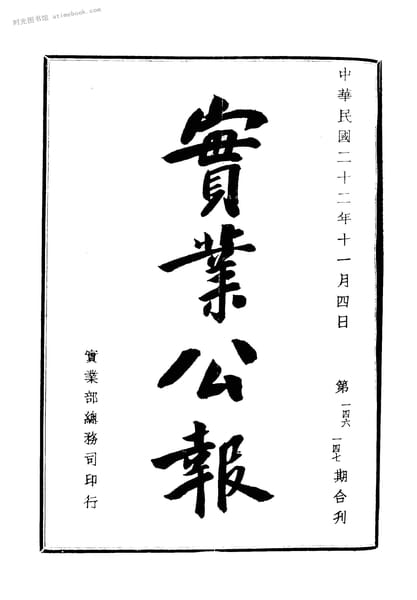 时光图书馆 - atimebook.com
中華民國二十二年十一月四日
第一四六一四七期合刊
實業公報
實業部總務司印行